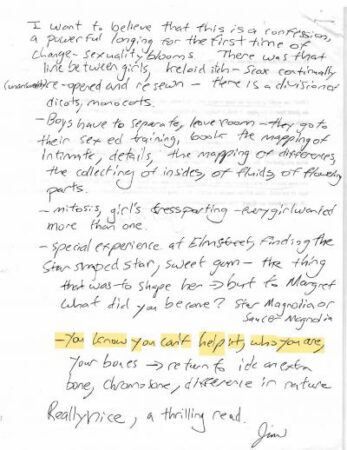 I want to believe that this is a confession,
a powerful longing for the first time of
change - sexuality blooms There was that
line between girls, keloid itch - scar continually
re-opened and resewn - there is a division of
dicots, monocots.
- Boys have to separate, leave room - they go to
their sex ed training, book the mapping of
Intimate, details, the mapping of differences,
the collecting of insides, of fluids of flowery
parts.
- mitosis, girl's parting - every girl wanted
more than one.
- special experience at Elmstreet, finding the
Star shaped star, sweet gum - the thing
that was to shape her → but to Margret
What did you become? Star Magnolia or
Saucer Magnolia
- You know you can't help it, who you are,
Your bones → return to idc an extra
bone, chromosone, difference in nature
Really nice, a thrilling read.
Jim